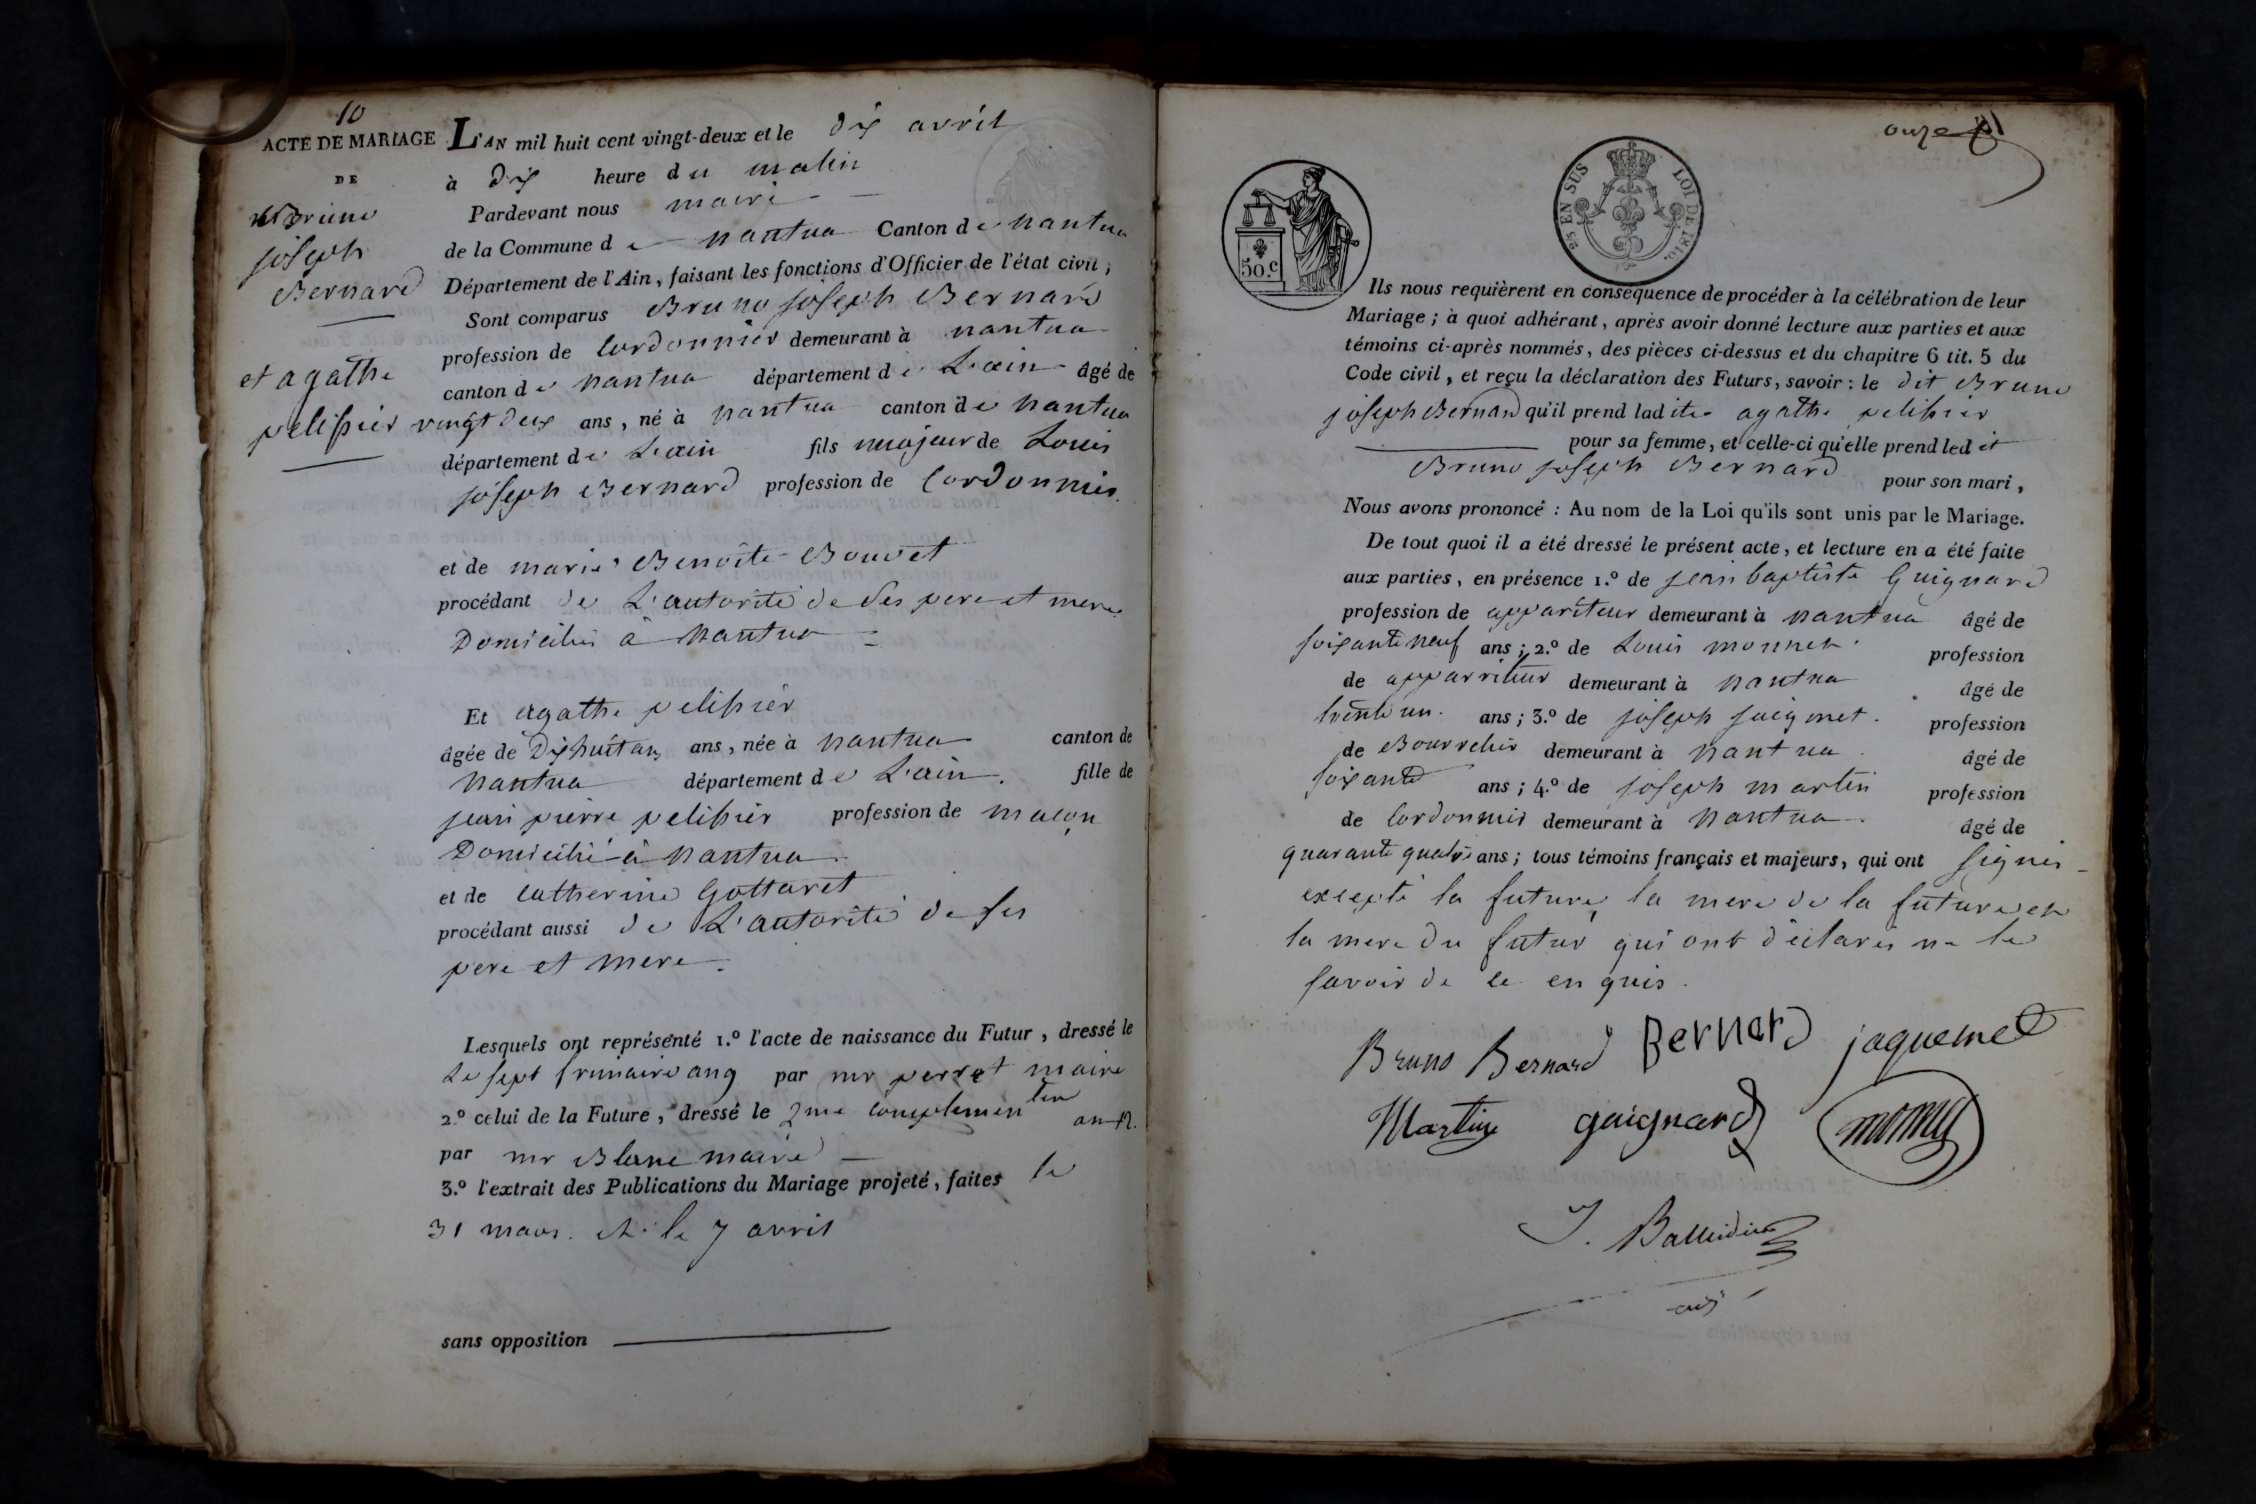 10
ACTE DE MARIAGE
DE
Bruno
joseph
Bernard
et agathe
pelissier
L'AN mil huit cent vingt-deux et le dix avril
à dix heure du matin
Pardevant nous maire
de la Commune de nantua Canton de nantua
Département de l'Ain, faisant les fonctions d'Officier de l'état civil;
Sont comparus Bruno joseph Bernard
profession de Cordonnier demeurant à nantua
canton de nantua département de L'ain âgé de
vingt deux ans, né à nantua canton de nantua
département de L'ain fils majeur de Louis
joseph Bernard profession de Cordonnier
et de marie Benoite Bouvet
procédant de L'autorité de ses pere et mere
Domiciliés à nantua
Et agathe pelissier
âgée de Dix huit ans ans, née à nantua canton de
nantua département de L'ain. fille de
jean pierre pelissier profession de maçon
Domicilié à nantua
et de Catherine Gottaret
procédant aussi de L'autorité de ses
pere et mere.
Lesquels ont représenté 1.º l'acte de naissance du Futur, dressé le
Le sept frimaire an 9 par mr perret maire
2.º celui de la Future, dressé le 2me Complementaire an 12.
par mr Blanc maire
3.º l'extrait des Publications du Mariage projeté, faites le
31 mars et le 7 avril
sans opposition
onze
EN SUS LOI DE 1816.
50.c
Ils nous requièrent en conséquence de procéder à la célébration de leur
Mariage; à quoi adhérant, après avoir donné lecture aux parties et aux
témoins ci-après nommés, des pièces ci-dessus et du chapitre 6 tit. 5 du
Code civil, et reçu la déclaration des Futurs, savoir: le dit Bruno
joseph Bernard qu'il prend ladite agathe pelissier
pour sa femme, et celle-ci qu'elle prend ledit
Bruno joseph Bernard pour son mari,
Nous avons prononcé: Au nom de la Loi qu'ils sont unis par le Mariage.
De tout quoi il a été dressé le présent acte, et lecture en a été faite
aux parties, en présence 1.º de jean baptiste Guignard
profession de appariteur demeurant à nantua âgé de
soixante neuf ans; 2.º de Louis monnet profession
de apparriteur demeurant à nantua âgé de
trente un ans; 3.º de joseph profession
de Bourrelier demeurant à nantua âgé de
soixante ans; 4.º de joseph martin profession
de Cordonnier demeurant à nantua âgé de
quarante quatre ans; tous témoins français et majeurs, qui ont signés
excepté la future, la mere de la future et
la mere du futur qui ont déclarés ne le
savoir de ce enquis.
Bruno Bernard Bernard jaquemet
Martin guignard monnet
J.
adj